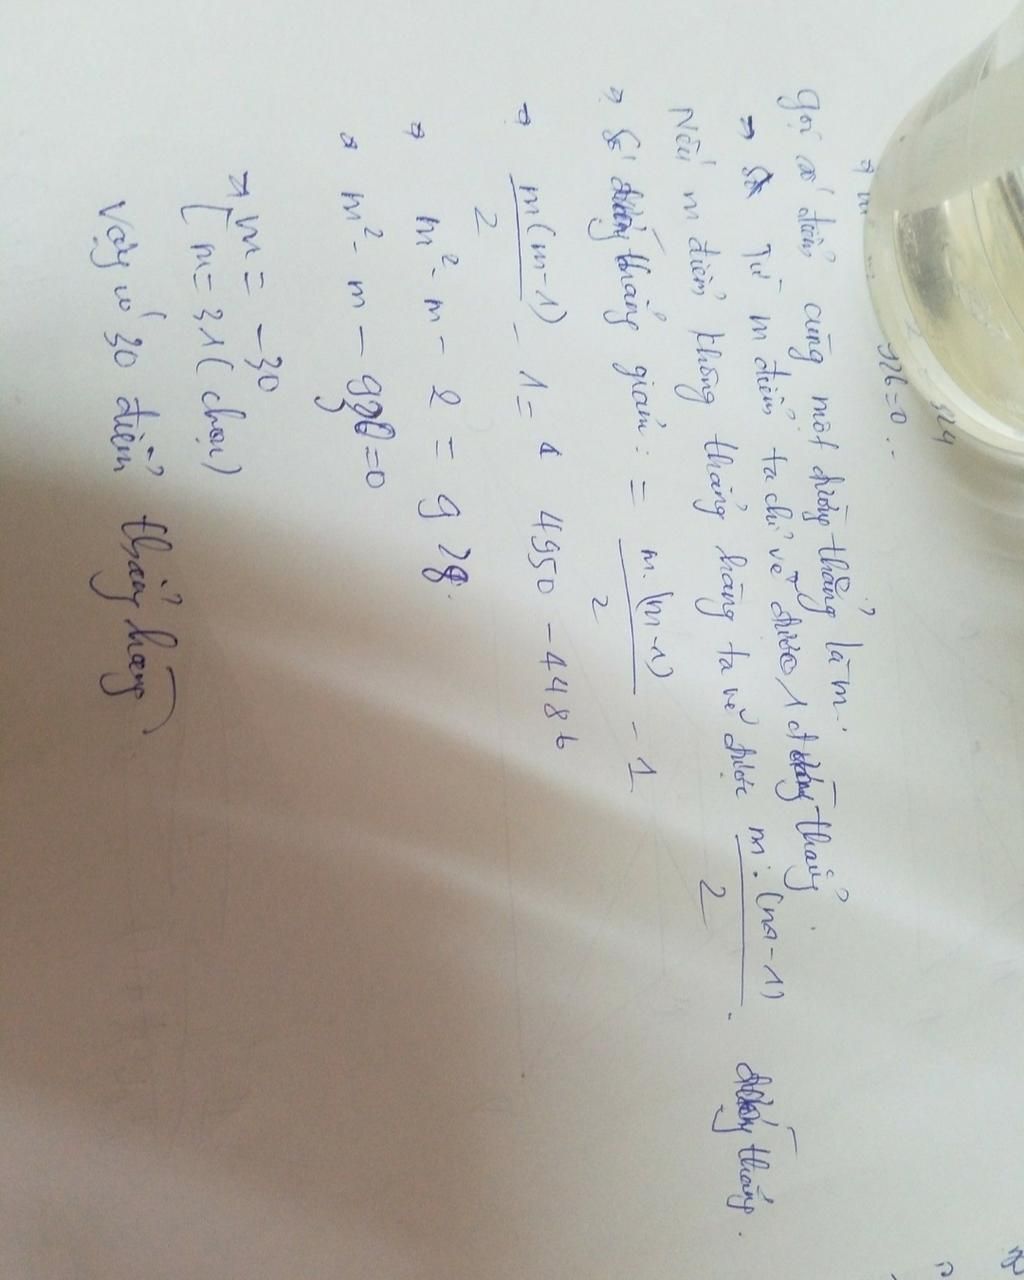 324
926=0
gọi số điểm cùng một đường thẳng là m.
→ Từ m điểm ta chỉ vẽ được 1 đường thẳng.
Nếu m điểm không thẳng hàng ta vẽ được m.(m-1)/2 đường thẳng.
→ Số đường thẳng giảm : = m.(m-1)/2 - 1
→ m(m-1)/2 - 1 = 4950 - 4486
→ m² - m - 2 = 928.
→ m² - m - 930=0
→ [ m = -30
m = 31 (chọn)
Vậy có 30 điểm thẳng hàng